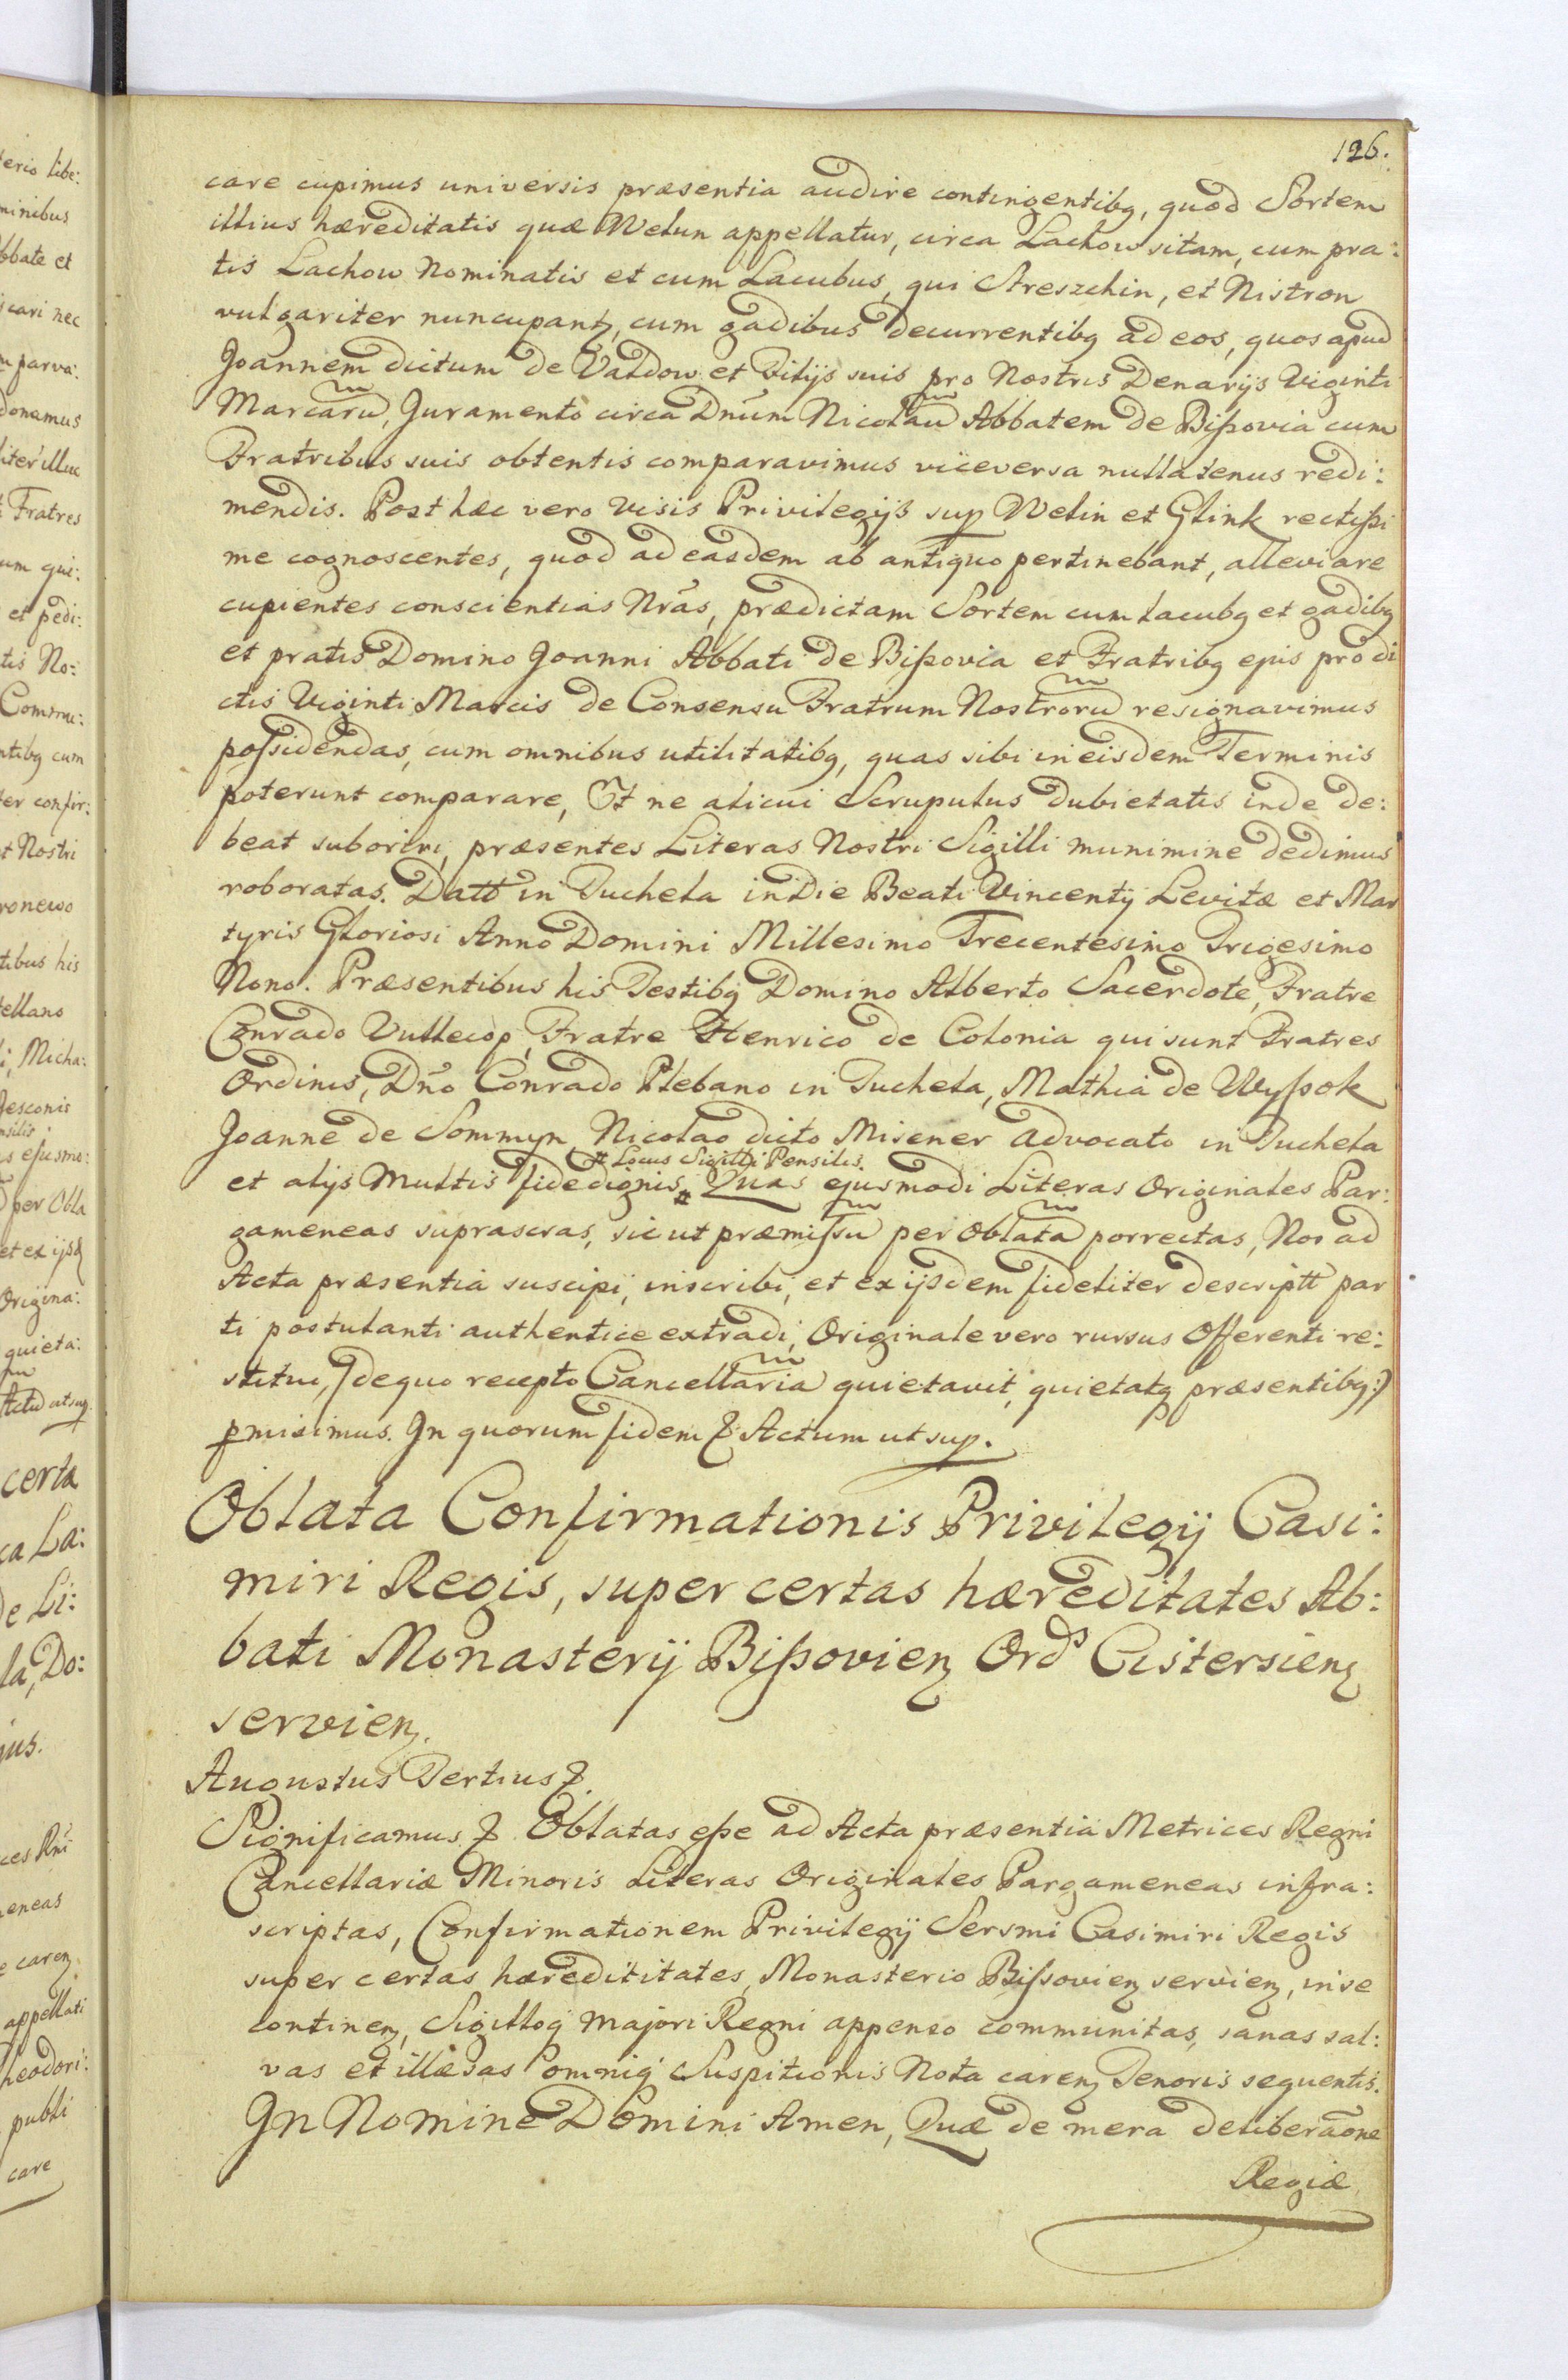 126.
care cupimus universis præsentia audire contingentibq, quod Sortem
illius hæreditatis quæ Welun appellatur, circa Lachow sitam, cum pra:
tis Lachow Nominatis et cum Lacubus, qui Streszchin, et Nistron
vulgariter nuncupantz, cum gadibus decurrentibq ad eos, quos apud
Joannem dictum de Valdow et Filijs suis pro Nostris Denarijs Viginti
Marcarũ, Juramento circa Dnũm Nicolaũ Abbatem de Bißovia cum
Fratribus suis obtentis comparavimus viceversa nullatenus redi:
mendis. Post hæc vero visis Privilegijs sup Welin et Glink rectißi
me cognoscentes, quod ad easdem ab antiquo pertinebant, alleviare
cupientes conscientias Nrãs, prædictam Sortem cum lacubq et gadibq
et pratis Domino Joanni Abbati de Bißovia et Fratribq ejus pro di
ctis Viginti Marcis de Consensu Fratrum Nostrorũ resignavimus
poßidendas, cum omnibus utilitatibq, quas sibi in eisdem Terminis
poterunt comparare, Et ne alicui Scrupulus dubietatis inde de:
beat suboriri, præsentes Literas Nostri Sigilli munimine dedimus
roboratas. Datt in Tuchela in Die Beati Vincentij Levitæ et Mar
tyris Gloriosi Anno Domini Millesimo Trecentesimo Trigesimo
Nono. Præsentibus his Testibq Domino Alberto Sacerdote, Fratre
Conrado Vullecop, Fratre Henrico de Colonia qui sunt Fratres
Ordinis, Dnõ Conrado Plebano in Tuchela, Mathia de Wyßok
Joanne de Sommyn Nicolao dicto Misener Advocato in Tuchela
# Locus Sigilli Pensilis.
et alijs Multis fidedignis # Quas ejusmodi Literas Originales Par:
gameneas suprascras, sicut præmißũ per Oblatã porrectas, Nos ad
Acta præsentia suscipi, inscribi, et ex ijsdem fideliter descriptt par
ti postulanti authentice extradi, Originale vero rursus Offerenti re:
stitui, (de quo recepto Cancellariã quietavit, quietatq præsentibq:)
pmisimus. In quorum fidem & Actum ut sup.
Oblata Confirmationis Privilegij Casi:
miri Regis, super certas hæreditates Ab:
bati Monasterij Bißovienz Ords Cistersienz
servienz.
Augustus Tertius &.
Significamus & Oblatas eße ad Acta præsentia Metrices Regni
Cancellariæ Minoris Literas Originales Pargameneas infra:
scriptas, Confirmationem Privilegij Sersmi Casimiri Regis
super certas hæredititates, Monasterio Bißovienz servienz, in se
continenz, Sigilloq Majori Regni appenso communitas, sanas sal:
vas et illæsas omniq Suspitionis Nota carenz Tenoris sequentis.
In Nomine Domini Amen, Quæ de mera deliberãone
Regiæ